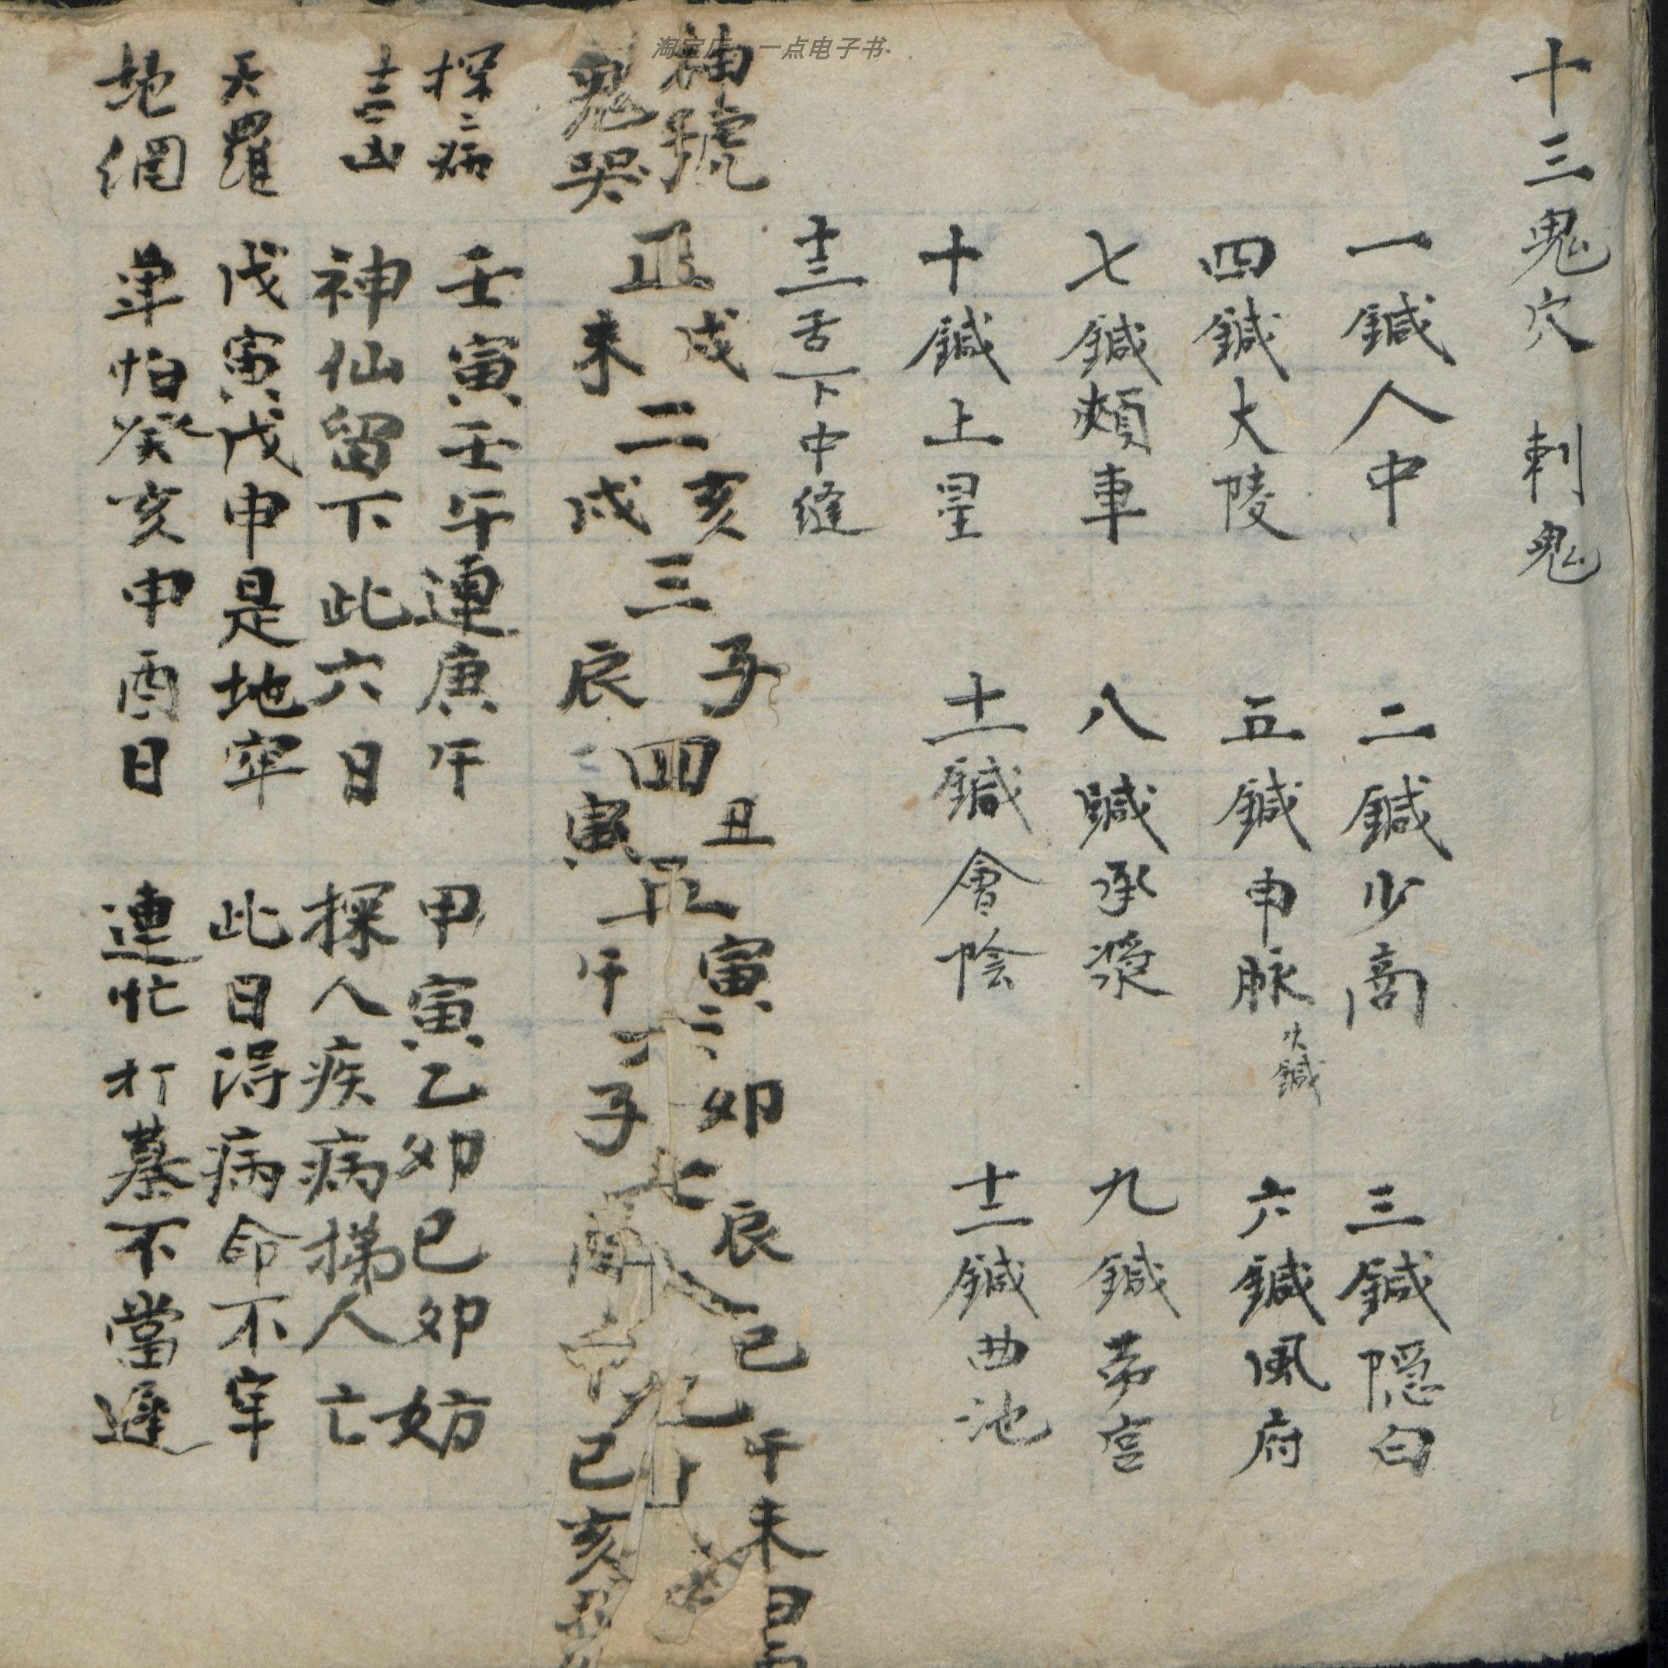 淘宝店 一点电子书
十三鬼穴 刺鬼
一鍼人中 二鍼少商 三鍼隠白
四鍼大陵 五鍼申脉 火鍼 六鍼風府
七鍼頰車 八鍼承漿 九鍼劳宫
十鍼上星 十一鍼會陰 十二鍼曲池
十三舌下中縫
神號 戌亥子丑寅卯辰巳午未
正二三四五六七八九十
鬼哭 未戌辰寅午子酉 巳亥
探病 壬寅壬午連庚午 甲寅乙卯己卯妨
十二凶 神仙留下此六日 探人疾病掦人亡
天羅 戊寅戊申是地牢 此日得病命不牢
地網 单怕癸亥申酉日 連忙打墓不當遲